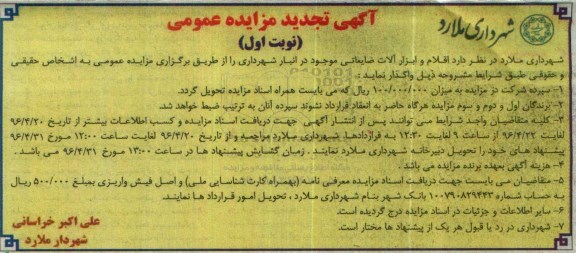 شهرداری ملارد
آگهی تجدید مزایده عمومی
(نوبت اول)
شهرداری ملارد در نظر دارد اقلام و ابزار آلات ضایعاتی موجود در انبار شهرداری را از طریق برگزاری مزایده عمومی به اشخاص حقیقی
و حقوقی طبق شرایط مشروحه ذیل واگذار نماید :
۱- سپرده شرکت در مزایده به میزان ۱۰۰/۰۰۰/۰۰۰ ریال که می بایست همراه اسناد مزایده تحویل گردد.
۲- برندگان اول و دوم و سوم مزایده هرگاه حاضر به انعقاد قرارداد نشوند سپرده آنان به ترتیب ضبط خواهد شد.
۳- کلیه متقاضیان واجد شرایط می توانند پس از انتشار آگهی جهت دریافت اسناد مزایده و کسب اطلاعات بیشتر از تاریخ ۹۶/۴/۲۰
لغایت ۹۶/۴/۲۲ از ساعت ۹ لغایت ۱۲:۳۰ به قراردادها شهرداری ملارد مراجعه و از تاریخ ۹۶/۴/۲۰ لغایت ساعت ۱۲:۰۰ مورخ ۹۶/۴/۳۱
پیشنهاد های خود را تحویل دبیرخانه شهرداری ملارد نمایند . زمان گشایش پیشنهاد ها در ساعت ۱۳:۰۰ مورخ ۹۶/۴/۳۱ می باشد .
۴- هزینه آگهی بعهده برنده مزایده می باشد .
۵- متقاضیان می بایست جهت دریافت اسناد مزایده معرفی نامه (بهمراه کارت شناسایی ملی) و اصل فیش واریزی بمبلغ ۵۰۰/۰۰۰ ریال
به حساب شماره ۱۰۰۷۹۰۸۲۹۴۴۳ بانک شهر بنام شهرداری ملارد ، تحویل امور قرارداد ها نمایند.
۶- سایر اطلاعات و جزئیات در اسناد مزایده درج گردیده است.
۷- شهرداری در رد یا قبول هر یک از پیشنهاد ها مختار است.
علی اکبر خراسانی
شهردار ملارد